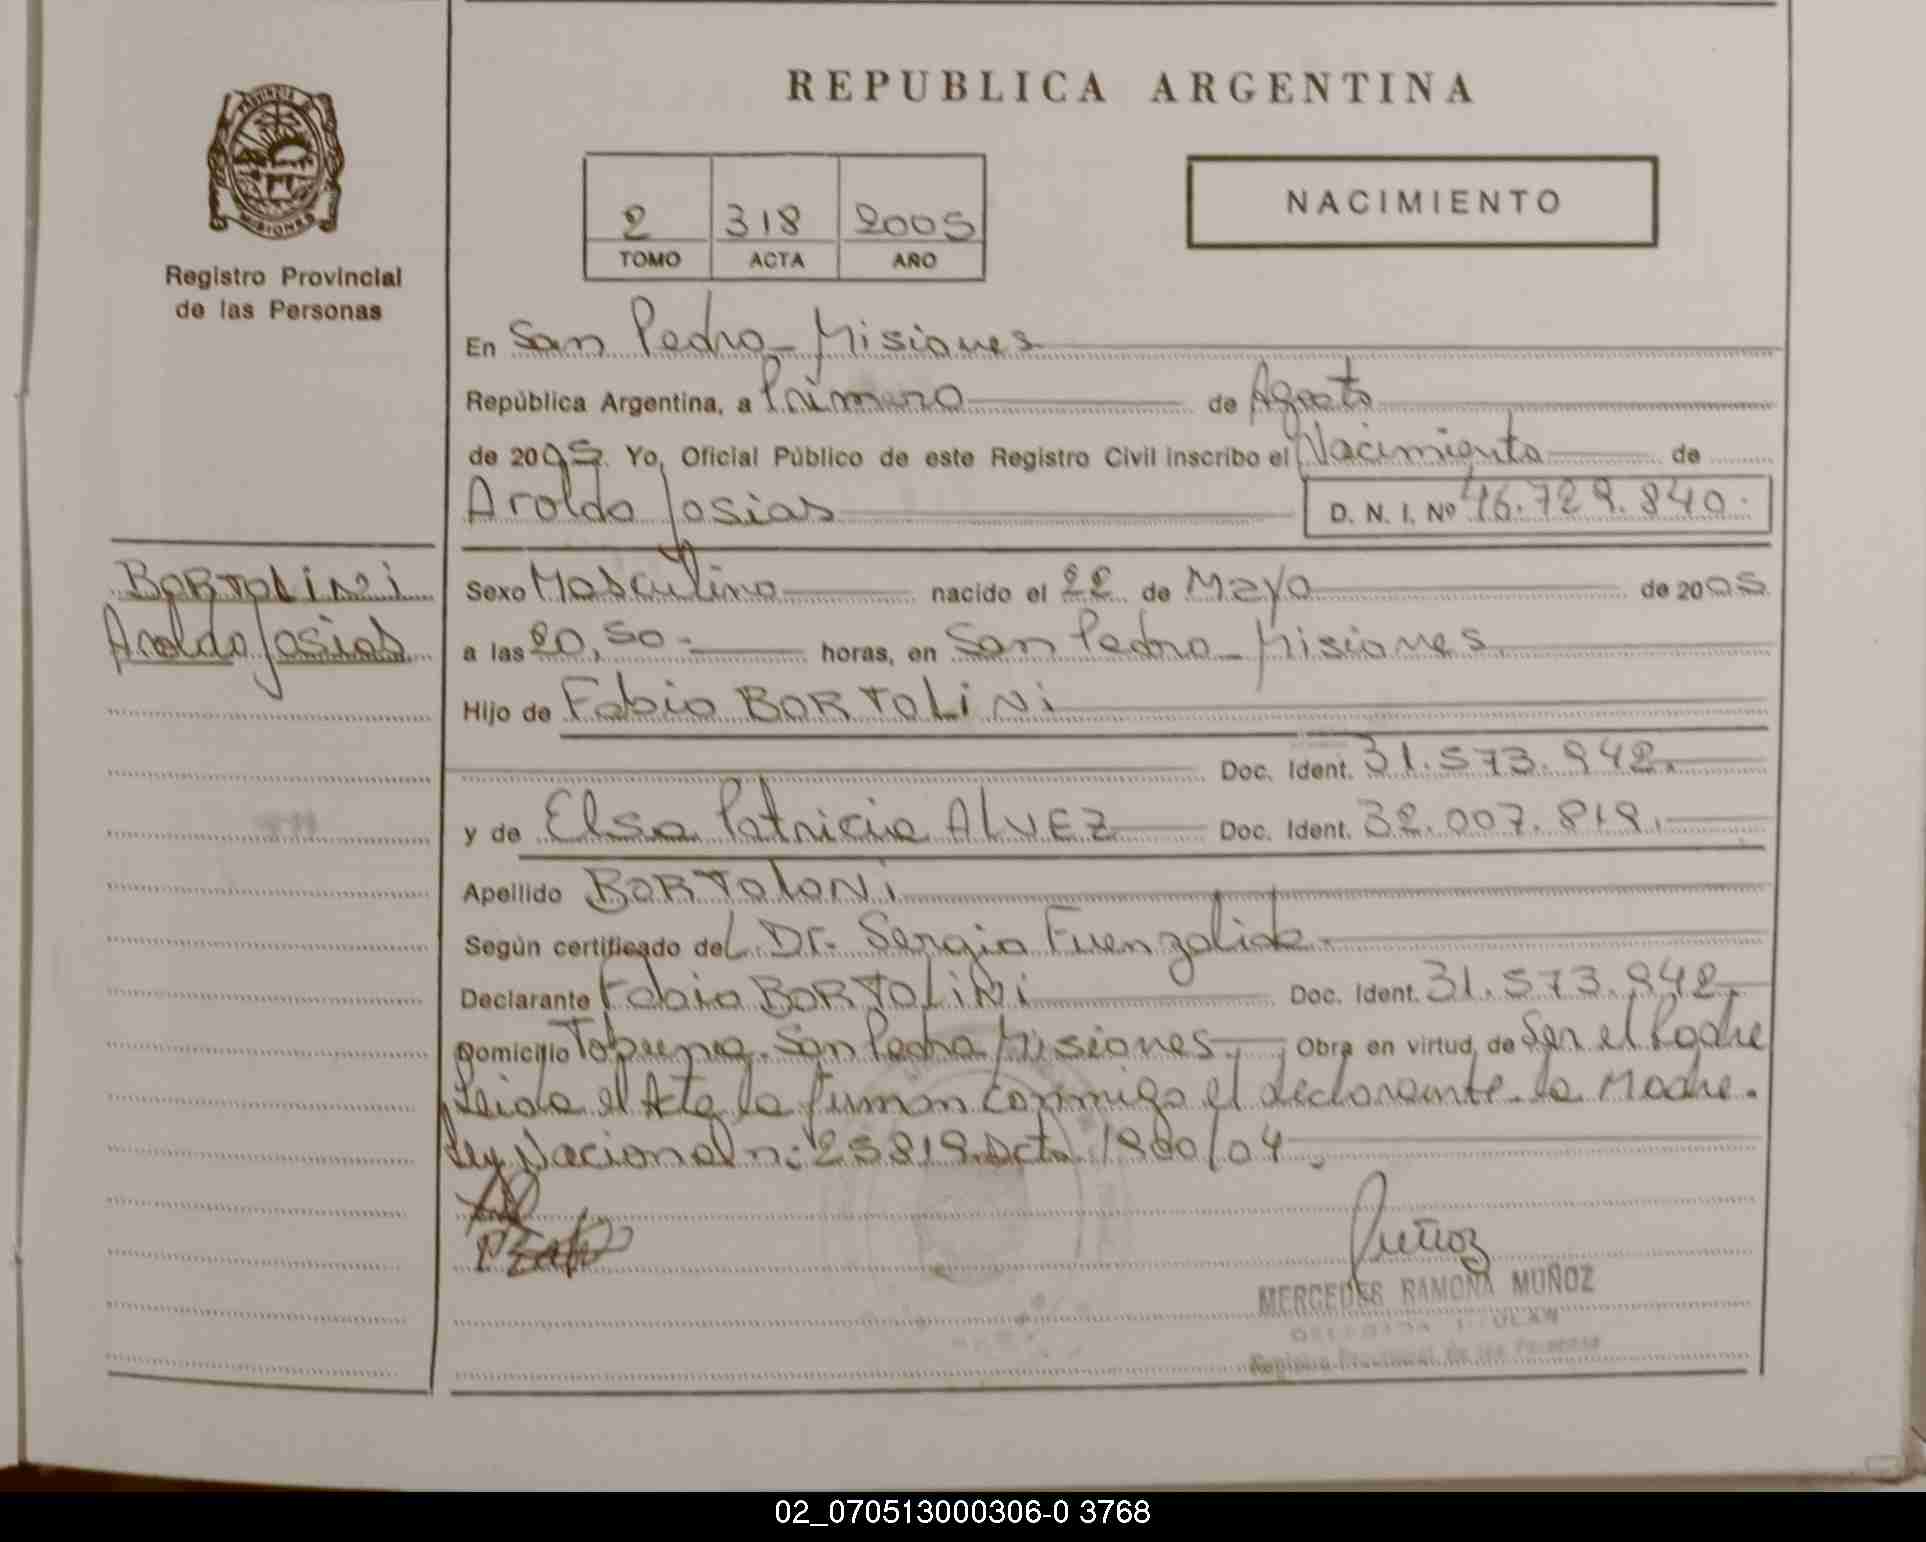 REPUBLICA ARGENTINA
PROVINCIA DE
MISIONES
Registro Provincial
de las Personas
2 318 2005
TOMO ACTA AÑO
NACIMIENTO
En San Pedro - Misiones
República Argentina, a Primero de Agosto
de 2005. Yo, Oficial Público de este Registro Civil inscribo el Nacimiento de
Aroldo Josias D. N. I. Nº 46.729.840.
BORTOLINI
Aroldo Josias
Sexo Masculino nacido el 22 de Mayo de 2005
a las 20,50 - horas, en San Pedro - Misiones
Hijo de Fabio BORTOLINI
Doc. Ident. 31.573.942.
y de Elsa Patricia ALVEZ Doc. Ident. 32.007.819.
Apellido BORTOLONI
Según certificado del Dr. Sergio Fuenzalida.
Declarante Fabio BORTOLINI Doc. Ident. 31.573.942.
Domicilio Tobuna. San Pedro Misiones. Obra en virtud, de Ser el Padre
Leida el Acta la firman conmigo el declarante - la Madre.
Ley Nacional n: 25819 Dcto 1900/04.
Muñoz
MERCEDES RAMONA MUÑOZ
DELEGADA TITULAR
Registro Provincial de las Personas
02_070513000306-0 3768